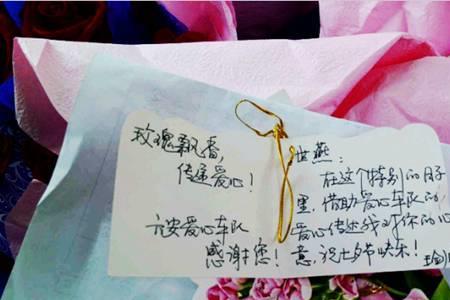 玫瑰飘香，
传递爱心！
六安爱心车队
感谢您！
世燕：
在这个特别的日子
里，借助爱心车队的
爱心传达我对你的心
意，祝七夕节快乐！